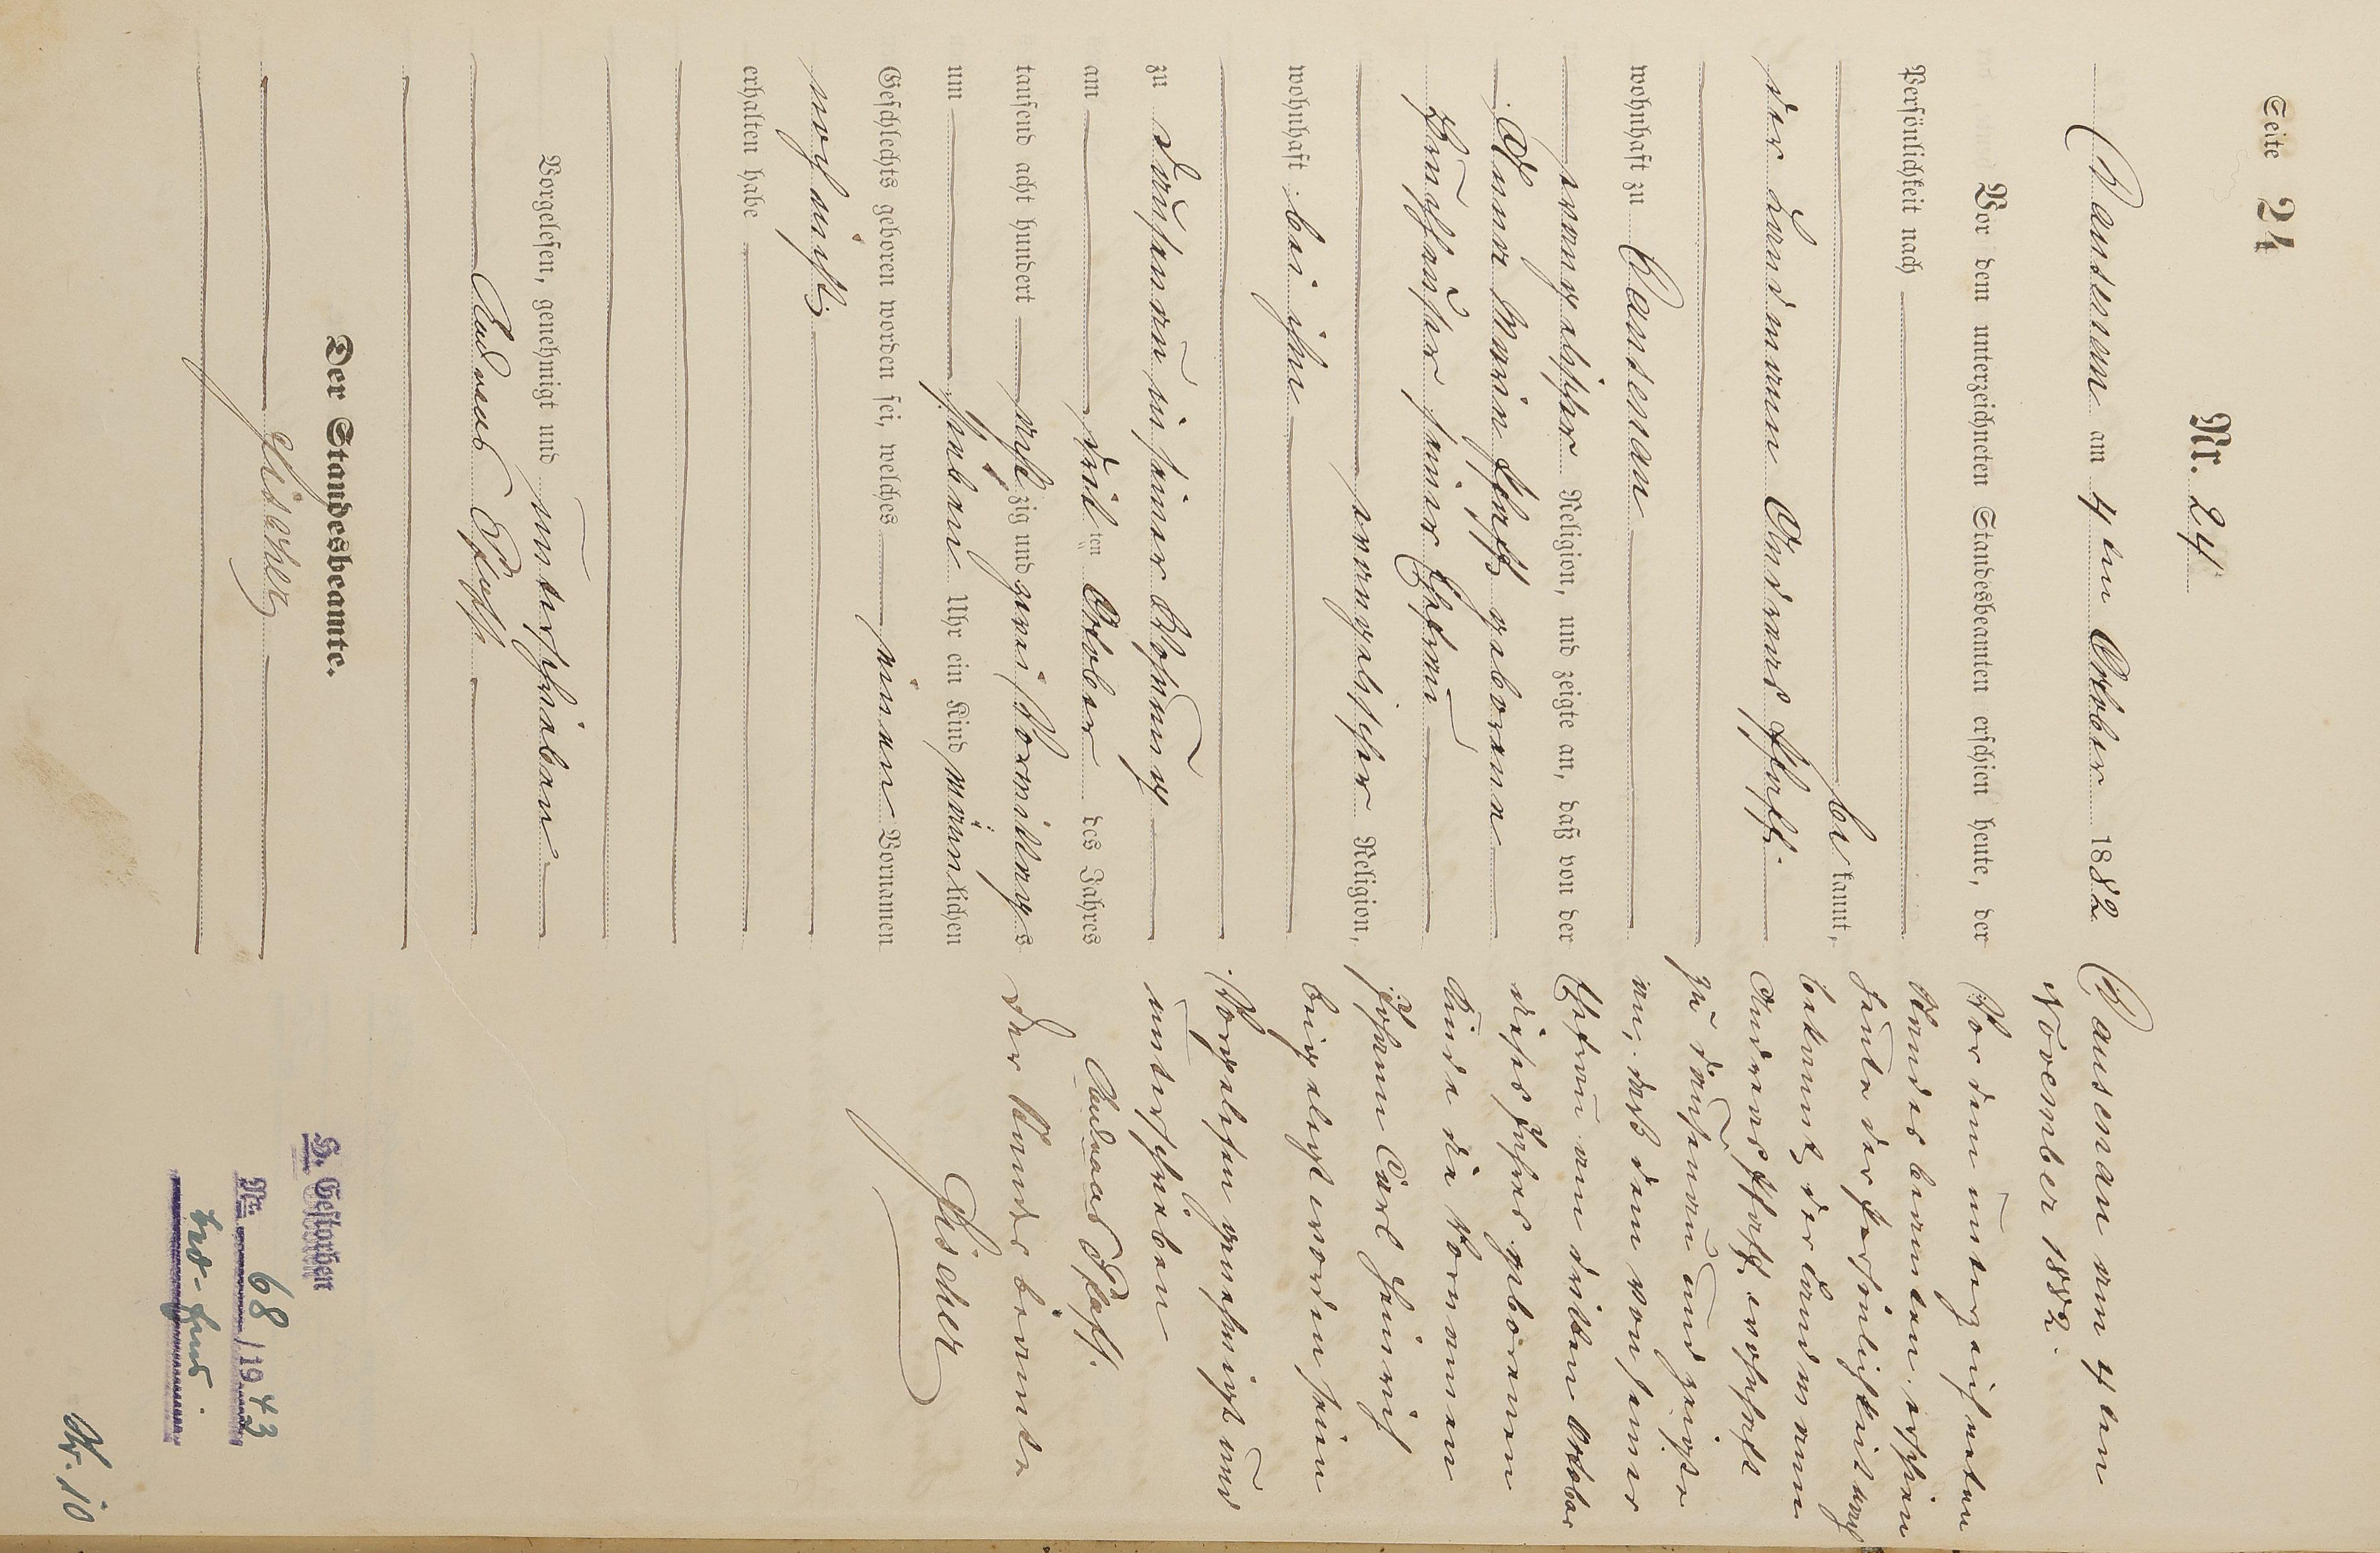 Seite 24
Nr. 24
Dausenau am 4ten October 1882
Vor dem unterzeichneten Standesbeamten erschien heute, der
Persönlichkeit nach
bekannt,
der Landmann Andreas Pfaff
wohnhaft zu Dausenau
evangelischer Religion, und zeigte an, daß von der
Anna Maria Pfaff geborene
seiner Ehefrau
evangelischer Religion,
wohnhaft bei ihm
zu Dausenau in seiner Wohnung
am dritten October des Jahres
tausend acht hundert achtzig und zwei Vormittags
um sieben Uhr ein Kind männlichen
Geschlechts geboren worden sei, welches einen Vornamen
noch nicht
erhalten habe
Vorgelesen, genehmigt und unterschrieben
Andreas Pfaff
Der Standesbeamte.
Fischer
Dausenau am 4ten
November 1882.
Vor dem unterzeichneten
Standesbeamten erschien
heute der Persönlichkeit nach
bekannt, der Landmann
Andreas Pfaff wohnhaft
zu Dausenau und zeigte
an, daß dem von seiner
Ehefrau am dritten October
dieses Jahres geborenen
Kinde die Vornamen
Johann Carl Heinrich
beigelegt worden seien
Vorgelesen genehmigt und
unterschrieben
Andreas Pfaff.
Der Standesbeamte
Fischer
H. Gestorben
Nr. 68/1943
Nr. 10